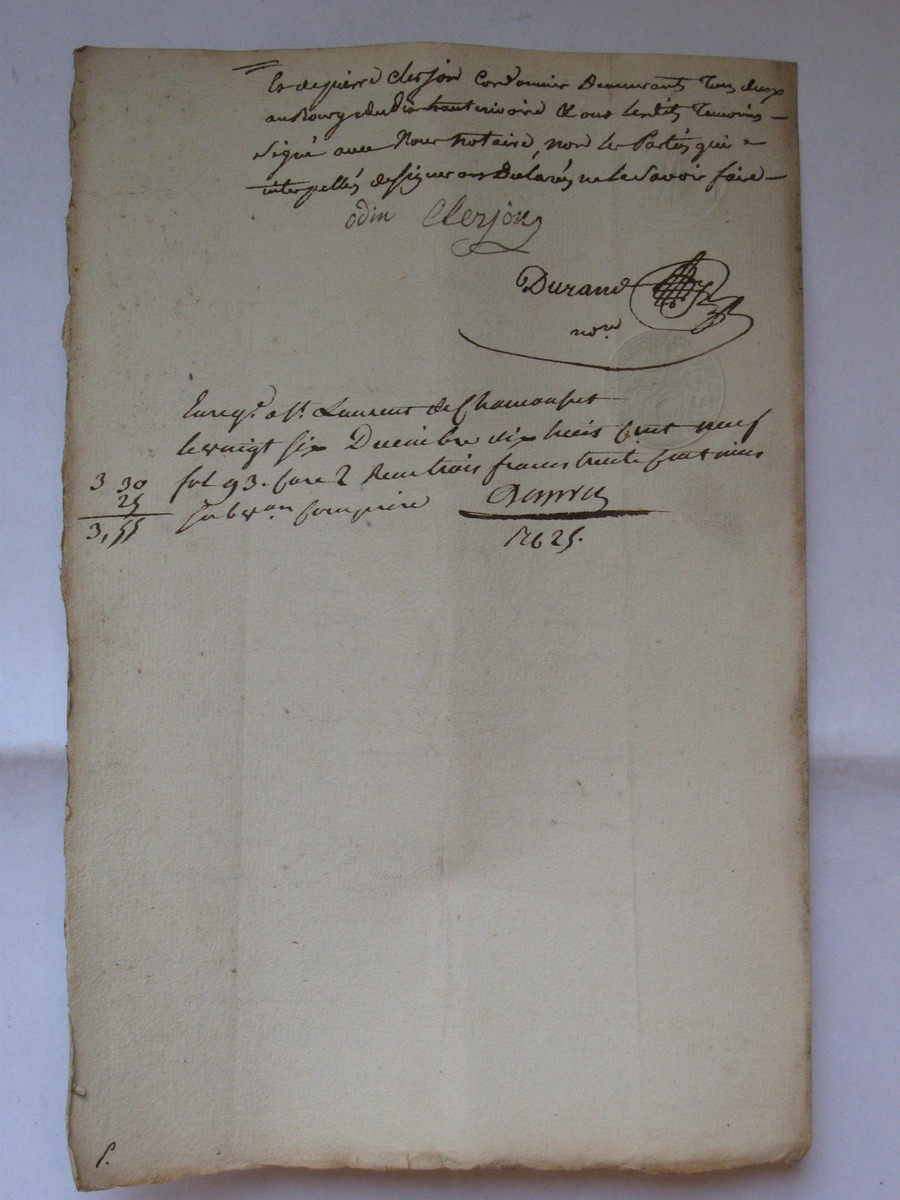 Et de pierre Clerjon Cordonnier Demeurants Tous deux
au Bourg dudit haut rivoire Et ont lesdits Temoins
Signé avec Nous notaire, non les Parties qui
interpellés de signer ont Declarés ne le Savoir faire
odin Clerjon
Durand
nore
Enregt. a St. Laurent de Chamousset
le vingt six Decembre dix huit Cent neuf
fol 93. Case 2 Recu trois francs trente Centimes
3 30
25
3,55
Subvon Comprise
S.